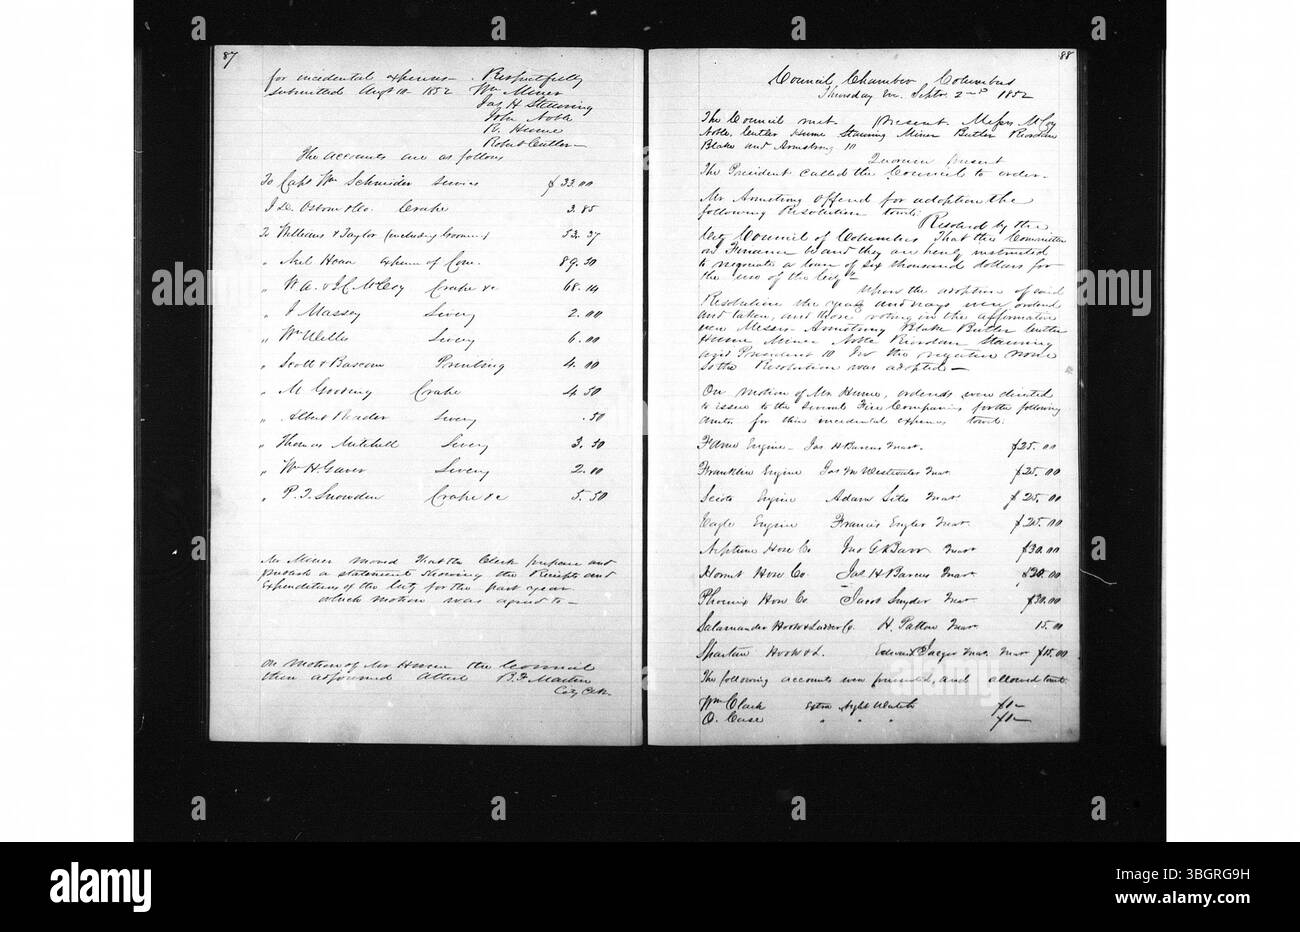 87
for incidental expenses - Respectfully
submitted Augt 10 1852 Wm Miner
Jas H Stauring
John Noble
R. Hume
Robert Cutler -
The accounts are as follows
To Capt Wm Schneider Services $33.00
J D. Osborn & Co. Crape 3.85
To Williams & Taylor (including Grooms) 53.37
" Expense of Com. 89.50
" W A. & J C. McCoy Crape &c 68.14
" J Massey Livery 2.00
" Wm Wells Livery 6.00
" Scott & Bascom Printing 4.00
" M Gooding Crape 4.50
" Albert Livery .50
" Thomas Mitchell Livery 3.50
" Wm H. Livery 2.00
" P. T. Snowden Crape &c 5.50
Mr Miner moved that the Clerk prepare and
publish a statement showing the Receipts and
Expenditures of the City for the past year
which motion was agreed to -
On motion of Mr Hume the Council
then adjourned Attest B. F. Martin
City Clerk
88
Council Chamber Columbus
Thursday Eve. Septr. 2nd 1852
The Council met, present Messrs McCoy
Noble, Cutler Hume Stauring Miner Butler Riordan
Blake and Armstrong 10
Quorum present
The President called the Council to order.
Mr Armstrong offered for adoption the
following Resolution towit:
Resolved by the
City Council of Columbus That the Committee
on Finance and they are hereby instructed
to negotiate a loan of Six thousand dollars for
the use of the City -
Upon the adoption of said
Resolution the yeas and nays were ordered
and taken, and those voting in the affirmative
were Messrs Armstrong Blake Butler Cutler
Hume Miner Noble Riordan Stauring
and President 10 In the negative none
So the Resolution was adopted -
On motion of Mr Hume, orders were directed
to issue to the Several Fire Companies for the following
for their incidental expenses towit:
Fame Engine - Jas H Barcus $25.00
Franklin Engine Westwater $25.00
Scioto Engine Adam Sites $25.00
Eagle Engine Francis Engler $25.00
Neptune Hose Co $30.00
Hornet Hose Co Jas H Barcus $30.00
Phoenix Hose Co Jacob Snyder $30.00
Salamander Hook & Ladder Co H. Patton 15.00
Spartan Hook & L. Edward $15.00
The following accounts were presented, and allowed towit
Wm Clark Extra Night Watch $1 -
O. Case " " " $1 -
alamy
a
alamy
Image ID: 3BGRG9H
www.alamy.com